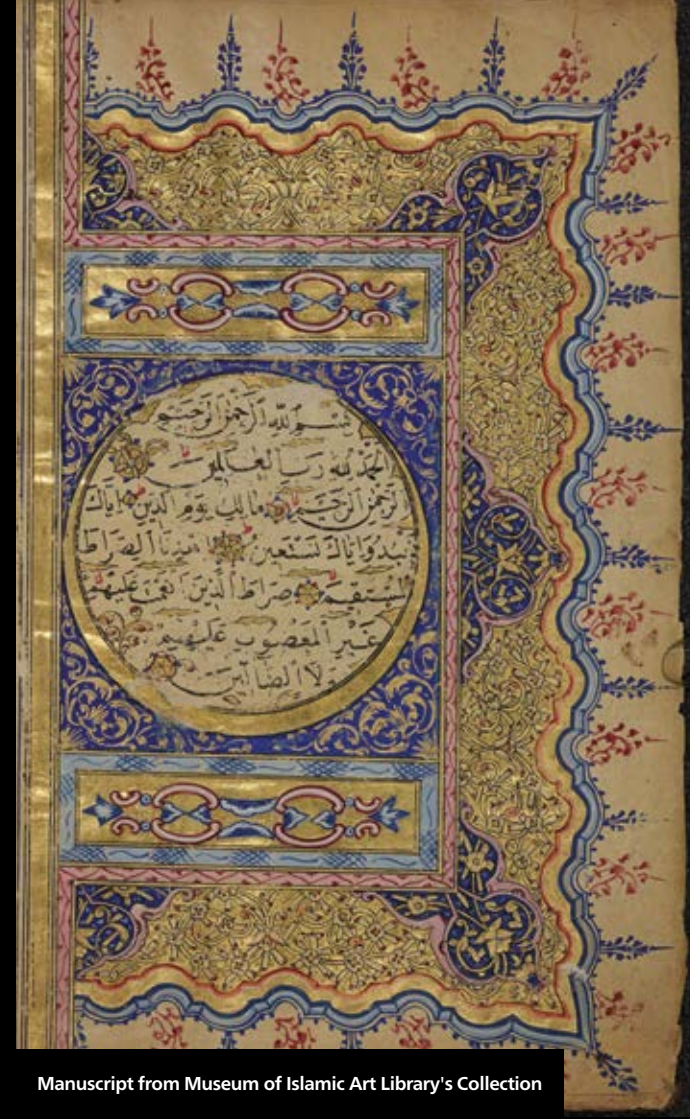 بسم الله الرحمن الرحيم
الحمد لله رب العالمين
الرحمن الرحيم مالك يوم الدين اياك
نعبد واياك نستعين اهدنا الصراط
المستقيم صراط الذين انعمت عليهم
غير المغضوب عليهم
ولا الضالين
Manuscript from Museum of Islamic Art Library's Collection